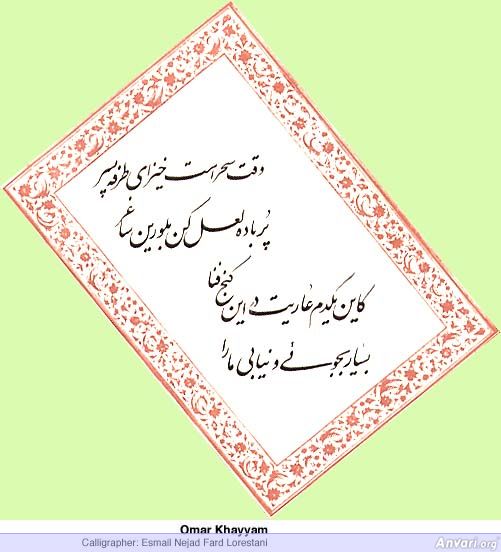 وقت سحر است خیز ای طرفه پسر
پُر باده لعل کن بلورین ساغر
کاین یکدم عاریت در این کنج فنا
بسیار بجوئی و نیابی ما را
Omar Khayyam
Calligrapher: Esmail Nejad Fard Lorestani
Anvari.org